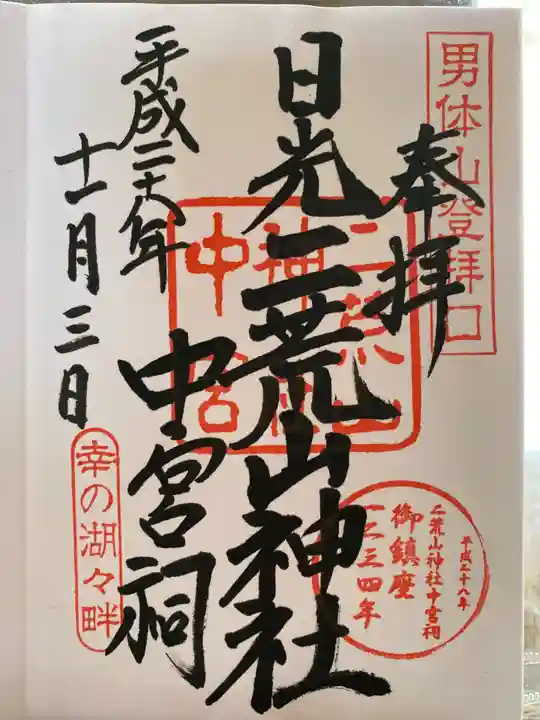 男体山登拝口
奉拝
日光二荒山神社
中宮祠
平成二十八年
十一月三日
二荒山
神社
中宮
平成二十八年
二荒山神社中宮祠
御鎮座
一二三四年
幸の湖々畔